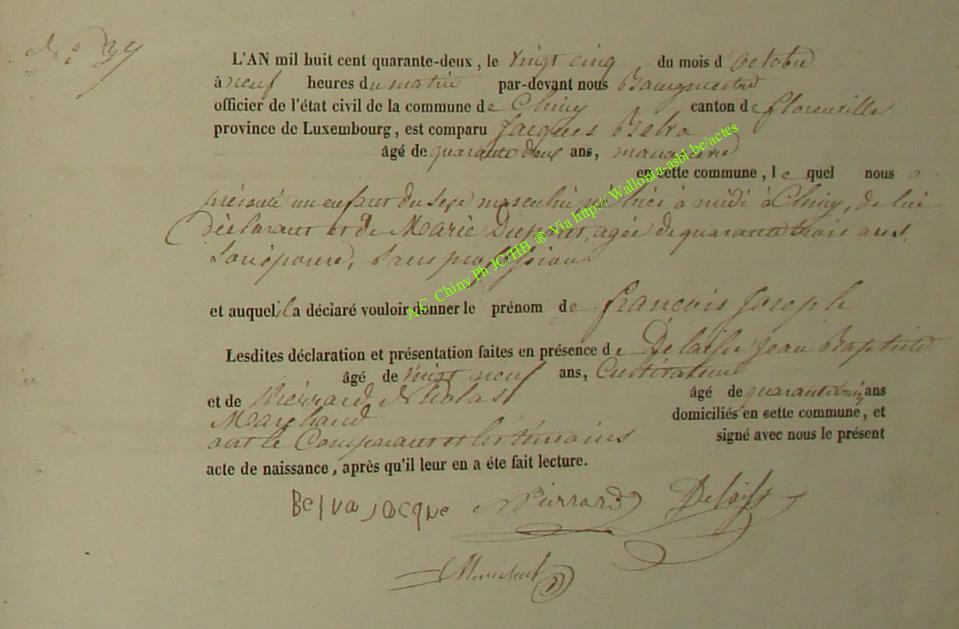 No 37
L'AN mil huit cent quarante-deux, le vingt cinq du mois d'octobre
à neuf heures du matin par-devant nous Bourgmestre
officier de l'état civil de la commune de Chiny canton de florenville
province de Luxembourg, est comparu Jacques Belva
âgé de quarante deux ans,
en cette commune, le quel nous a
présenté un enfant du sexe masculin né hier à midi à Chiny, de lui
Déclarant et de Marie Dupont, agée de quarante trois ans,
son épouse, sans profession
et auquel il a déclaré vouloir donner le prénom de françois Joseph
Lesdites déclaration et présentation faites en présence de Jean Baptiste
âgé de vingt neuf ans, Cultivateur
et de Piérrard Nicolas âgé de quarante ans
Marchand domiciliés en cette commune, et
ont le Comparant et les témoins signé avec nous le présent
acte de naissance, après qu'il leur en a éte fait lecture.
Belva Jacque N Pierrard
A.C. Chiny Ph JC/HB @ Via http://Wallonia-asbl-be/actes